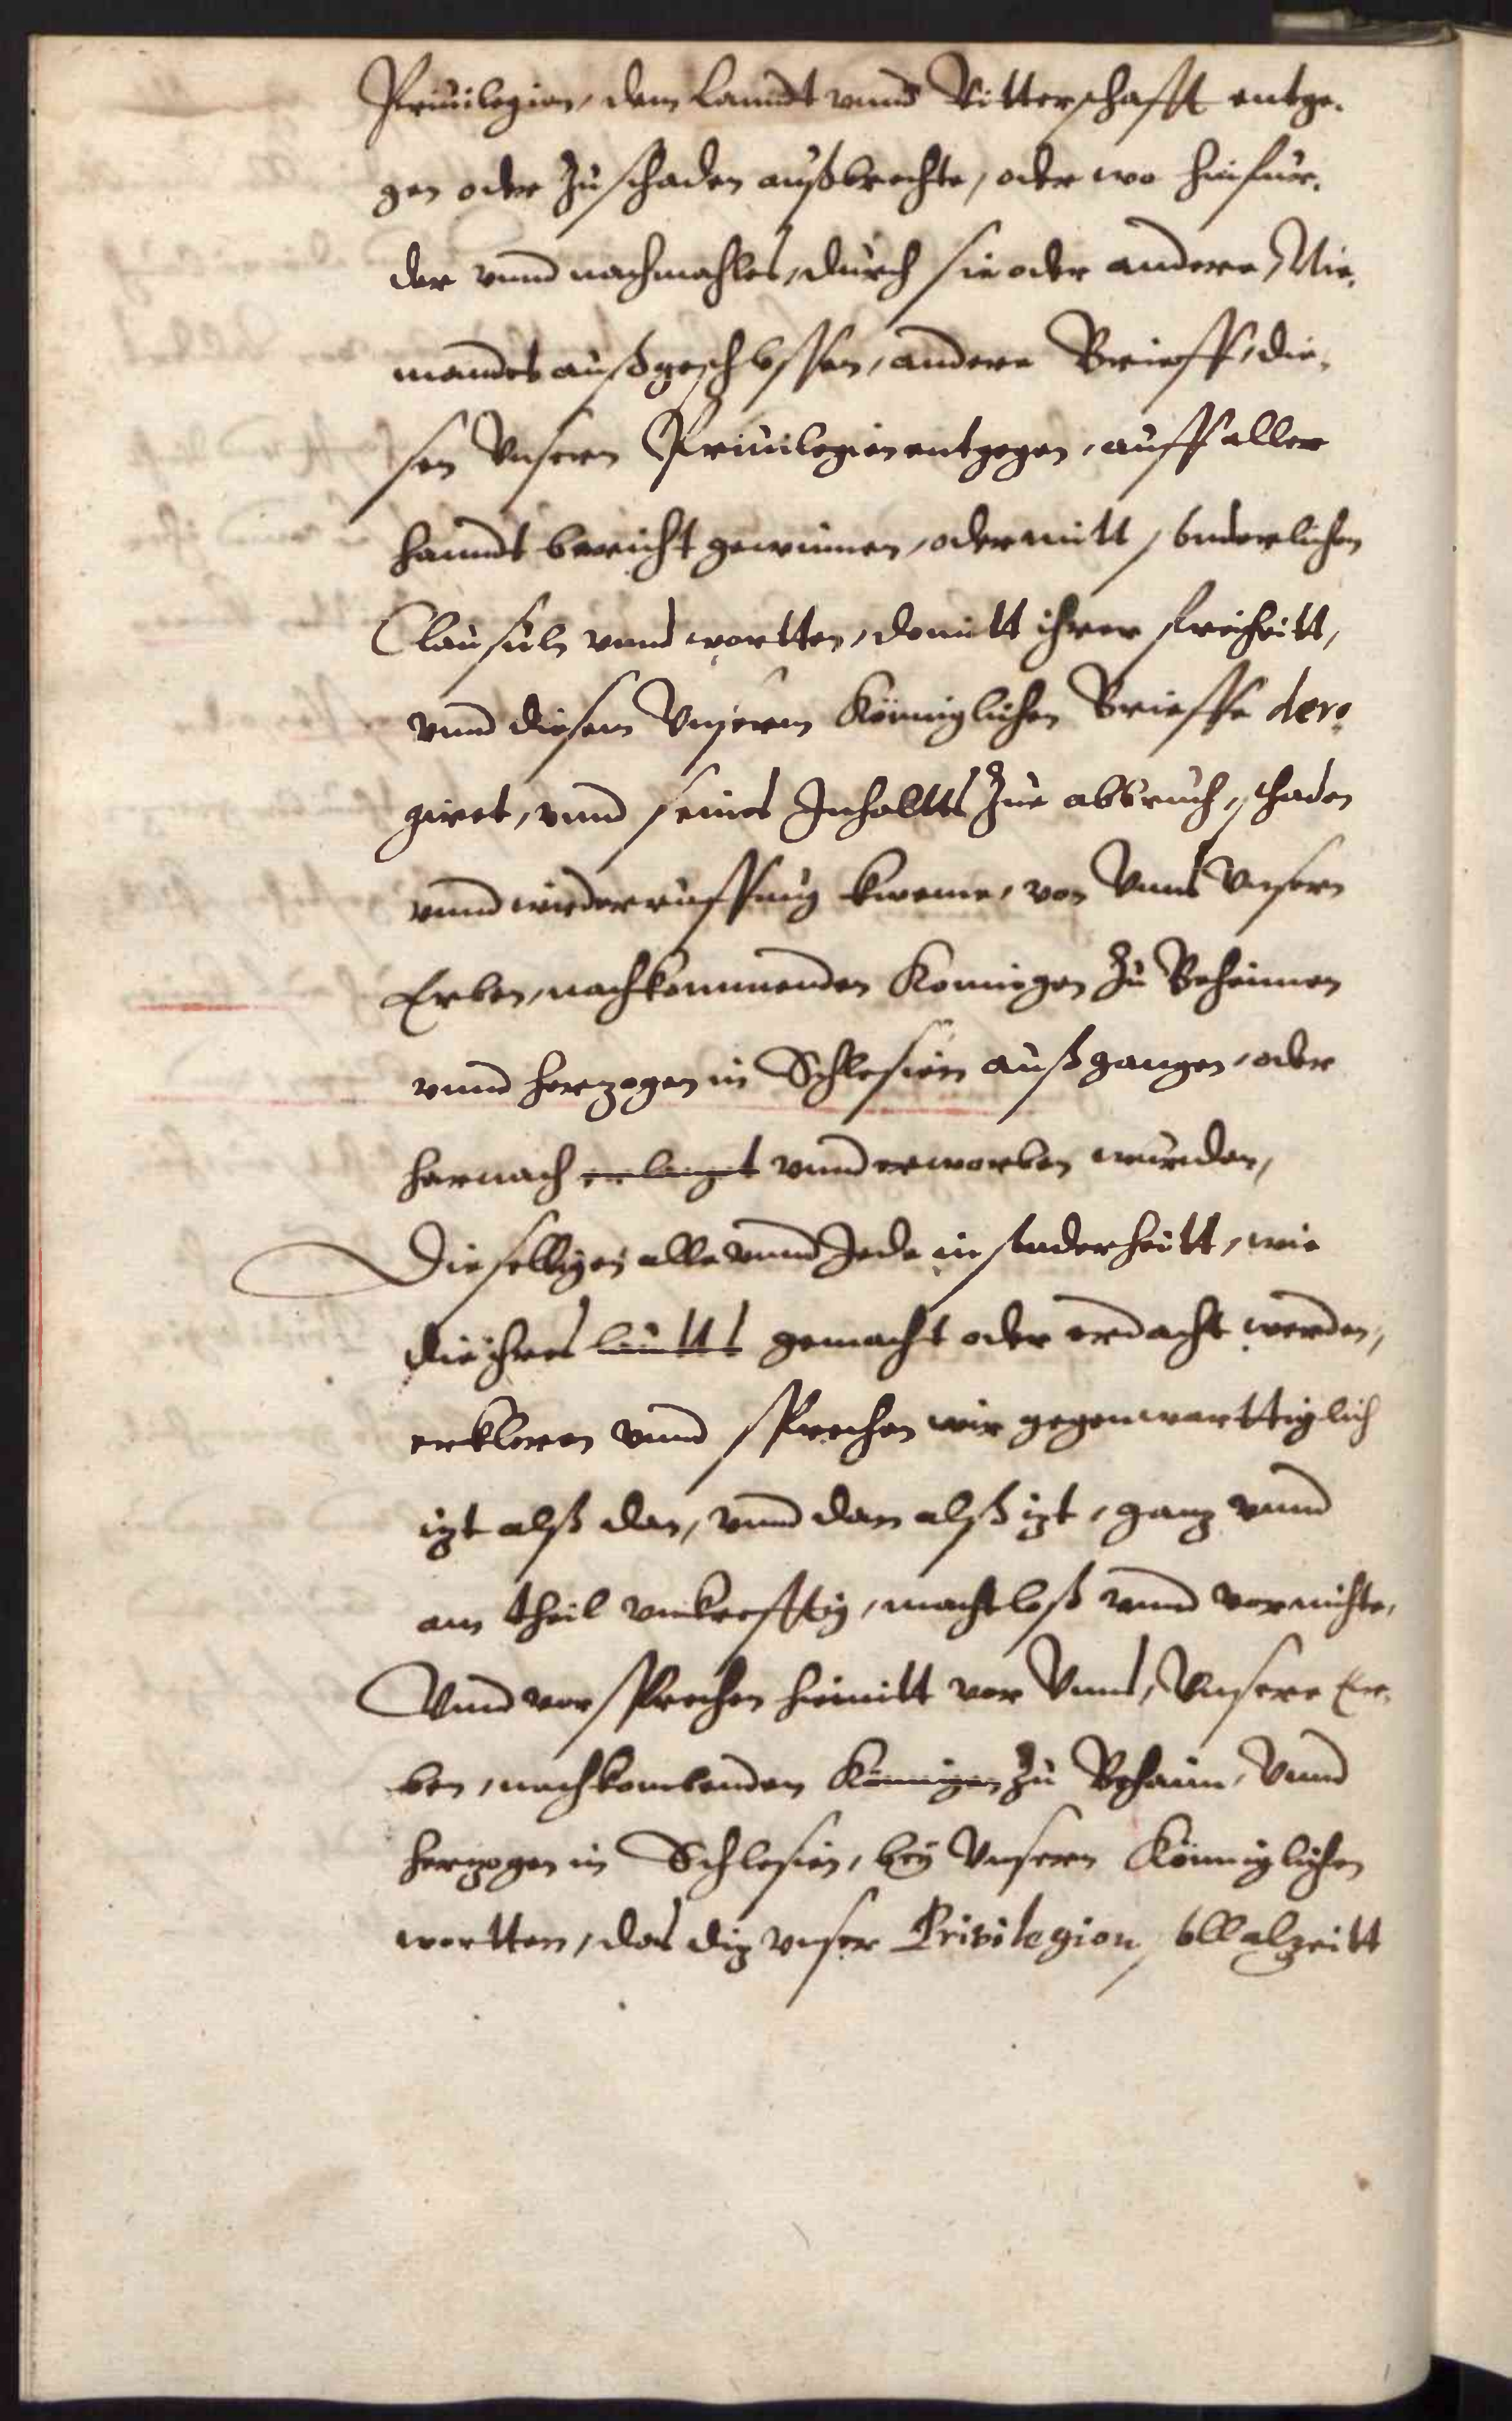 Priuilegien, dem Lanndt vnnd Ritterschafft entge-
gen oder zu schaden außbrechte, oder wo hinfur-
der vnnd nachmahles, durch sie oder andere, Nie-
mandes außgeschlossen, andere Brieff, die-
sen Vnsern Priuilegien entgegen, auff aller
handt bericht gewinnen, oder mitt sonderlichen
Clausuln vnnd wortten, domitt ihrer freiheitt,
vnnd diesem Vnserm Königlichen Brieffe dero-
giret, vnnd seines Inhaltts zue abbruch, schaden
vnnd wiederruffung kweme, von Vnns Vnsern
Erben, nachkommenden Konnigen zu Beheimen
vnnd herzogen in Schlesien außgangen, oder
hernach erlangt vnnd erworben wurden,
Dieselbigen alle vnnd Jede in sonderheitt, wie
die ihres lautts gemacht oder erdacht werden,
erkleren vnnd sprechen wir gegenwarttiglich
izt alß dan, vnnd dan alß izt, ganz vnnd
am theil vnkrefftig, machtloß vnnd vornichte,
Vnnd vorsprechen hiemitt vor Vnns, Vnsere Er-
ben, nachkombenden Könnigen zu Behaim, Vnnd
herzogen in Schlesien, bey Vnsern Königlichen
wortten, das diz vnser Privilegion soll alzeitt